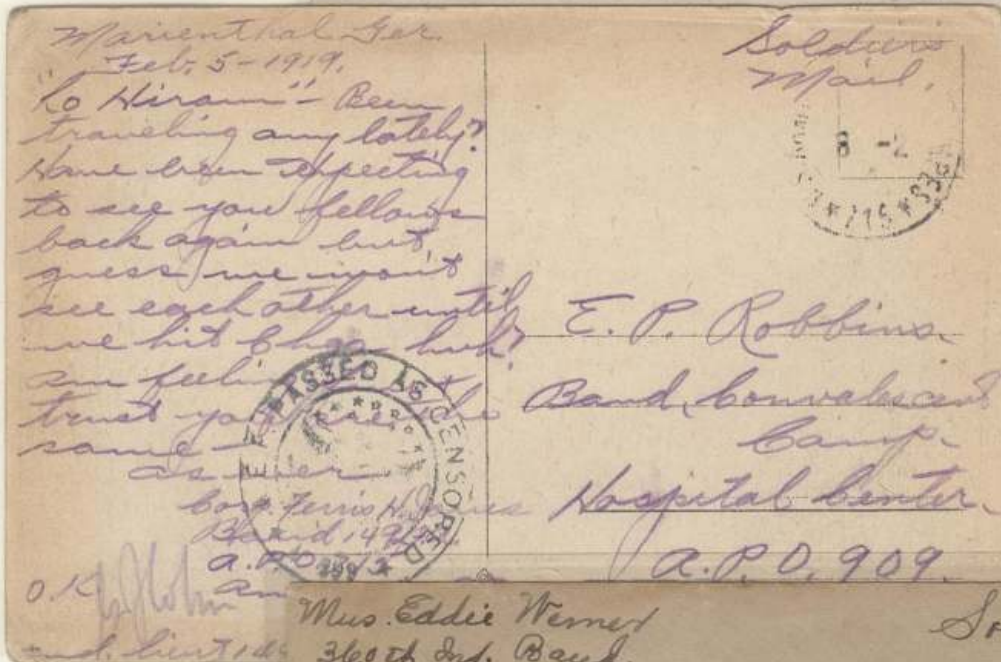 Marienthal Ger.
Feb. 5-1919.
"Lo Hiram" - Been
traveling any lately?
Have been expecting
to see you fellows
back again but
guess we won't
see each other until
we hit Chgo. huh?
am feeling
trust you are the
same -
as ever
Corp. Ferris H.
Band 149
A.P.O.
O.K.
Soldiers
Mail.
8 -2
E. P. Robbins.
Band, Convalescent
Camp.
Hospital Center.
A.P.O. 909.
A.E.F. PASSED AS CENSORED
Mus. Eddie Werner
360th Inf. Band.